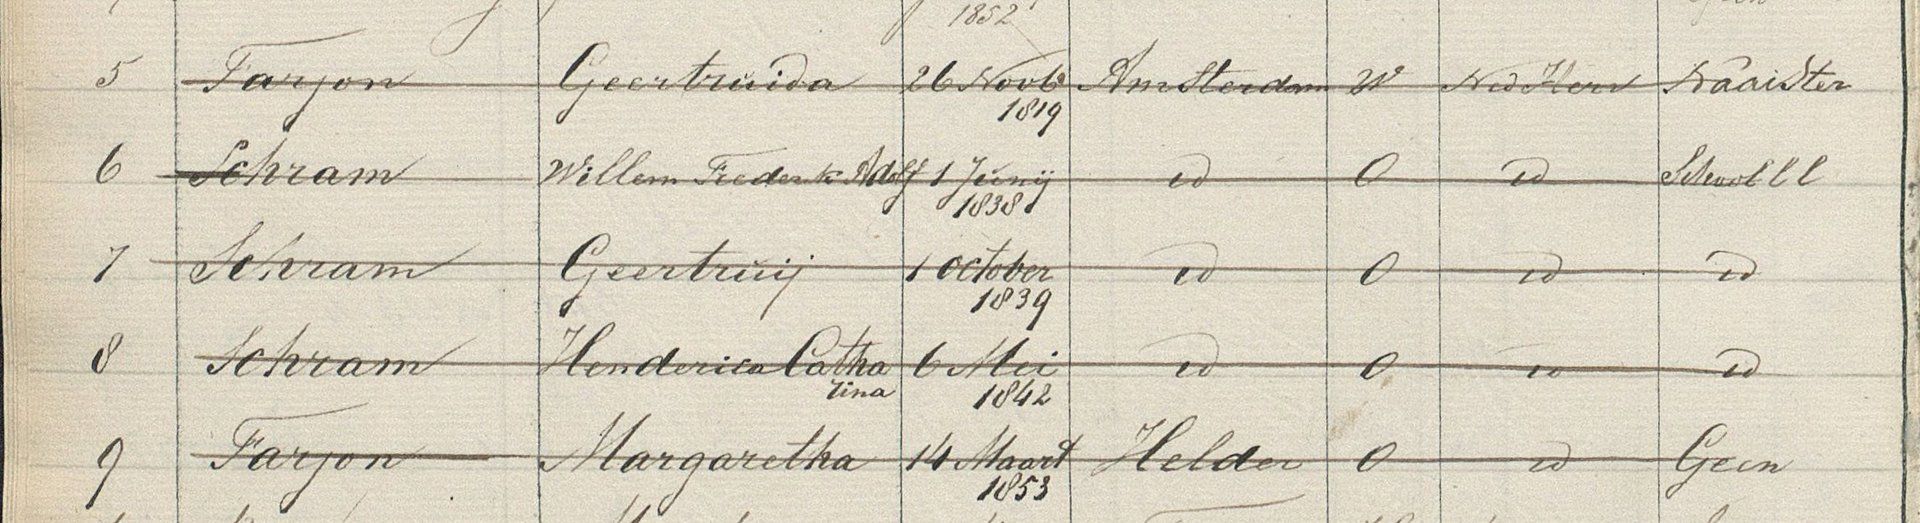 1852
5 Farjon Geertruida 26 Novb Amsterdam W Ned Herv Naaister
1819
6 Schram Willem Frederik Adolf 1 Junij id O id School l l
1838
7 Schram Geertruij 1 October id O id id
1839
8 Schram Henderica Catha 6 Mei id O id id
rina 1842
9 Farjon Margaretha 14 Maart Helder O id Geen
1853